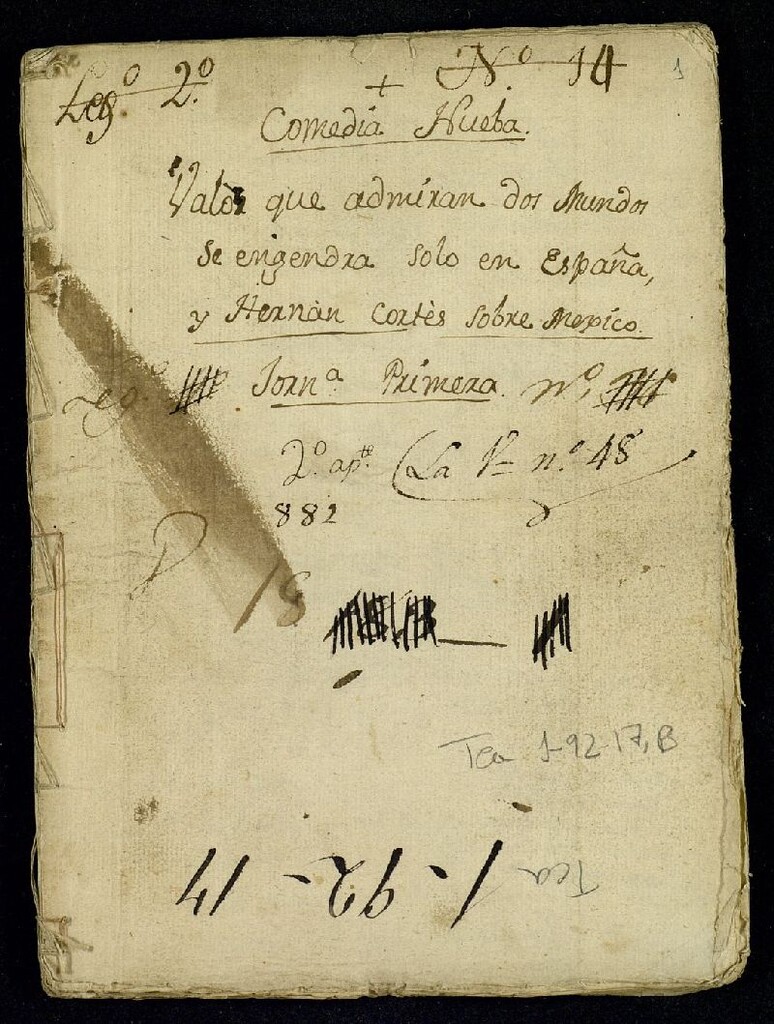 Leg.º 2.º + N.º 14 1
Comedia Nueba.
Valor que admiran dos Mundos
se engendra solo en España,
y Hernàn Cortès sobre Mexico.
Leg.º Jorn.ª Primera. nº,
2.º ap.te (La 1.ª n.º 48
882
D 18
Tea 1-92-17, B
Tea 1-92-17